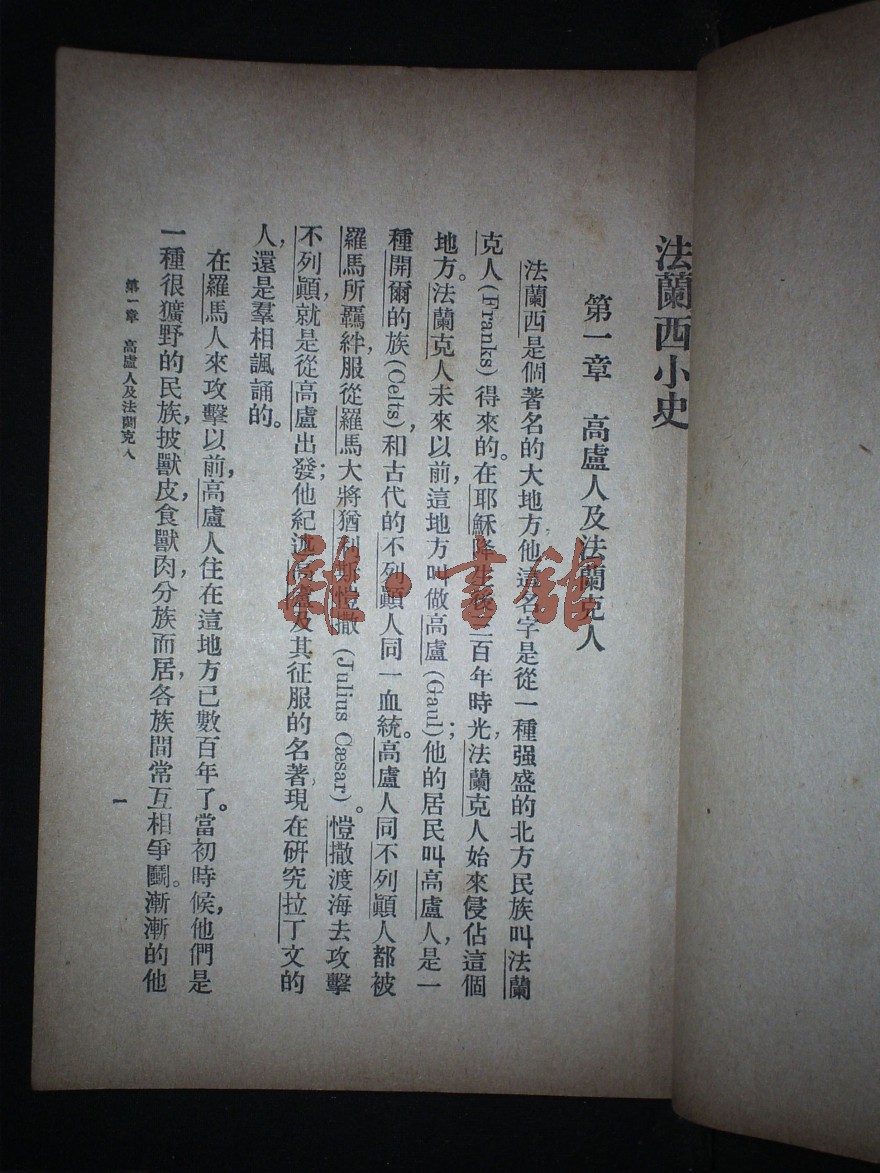 法蘭西小史
第一章 高盧人及法蘭克人
法蘭西是個著名的大地方,他這名字是從一種强盛的北方民族叫法蘭
克人(Franks)得來的。在耶穌降生後二百年時光,法蘭克人始來侵佔這個
地方。法蘭克人未來以前,這地方叫做高盧(Gaul);他的居民叫高盧人,是一
種開爾的族(Celts),和古代的不列顚人同一血統。高盧人同不列顚人都被
羅馬所羈絆,服從羅馬大將猶利斯愷撒(Julius Cæsar)。愷撒渡海去攻擊
不列顚,就是從高盧出發;他紀述高盧及其征服的名著,現在研究拉丁文的
人,還是羣相諷誦的。
在羅馬人來攻擊以前,高盧人住在這地方已數百年了。當初時候,他們是
一種很獷野的民族,披獸皮,食獸肉,分族而居,各族間常互相爭鬭。漸漸的他
第一章 高盧人及法蘭克人
一
雜·書館